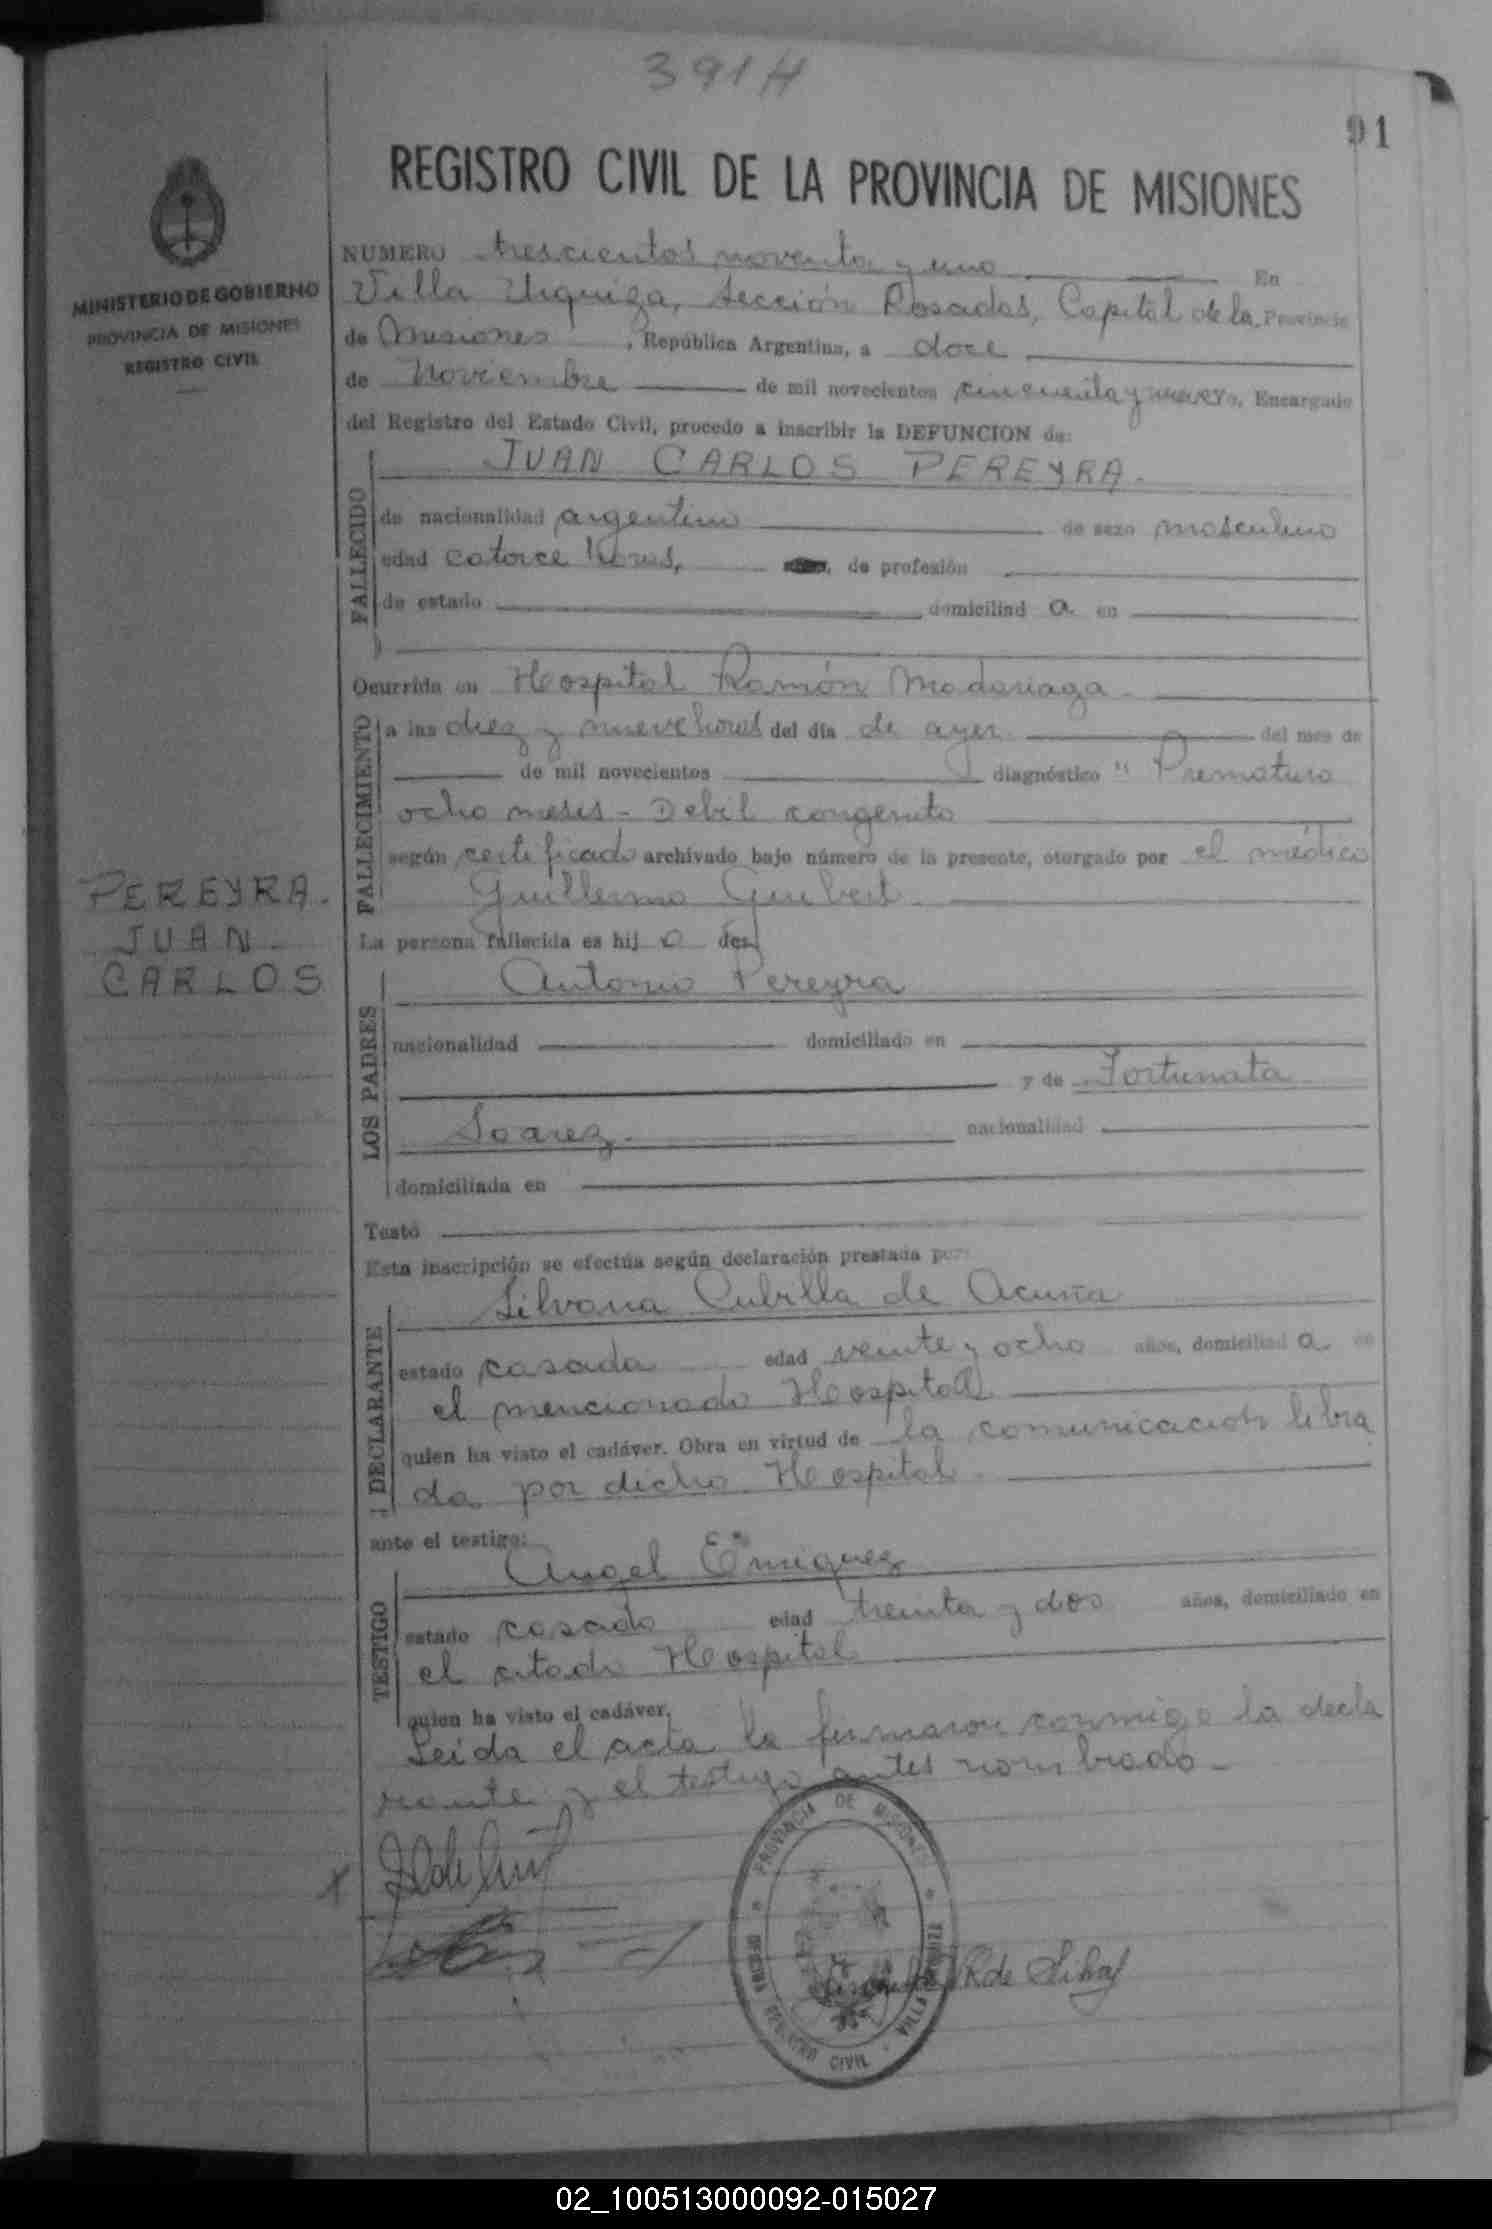 391 H
91
REGISTRO CIVIL DE LA PROVINCIA DE MISIONES
MINISTERIO DE GOBIERNO
PROVINCIA DE MISIONES
REGISTRO CIVIL
NUMERO trescientos noventa y uno En
Villa Urquiza, Sección Posadas, Capital de la Provincia
de Misiones, República Argentina, a doce
de Noviembre de mil novecientos cincuenta y nueve yo, Encargado
del Registro del Estado Civil, procedo a inscribir la DEFUNCION de:
JUAN CARLOS PEREYRA.
FALLECIDO
de nacionalidad argentino de sexo masculino
edad catorce horas, de profesión
de estado domiciliad a en
Ocurrida en Hospital Ramón Madariaga
FALLECIMIENTO
a las diez y nueve horas del día de ayer del mes de
de mil novecientos diagnóstico " Prematuro
ocho meses - Debil congenito
según certificado archivado bajo número de la presente, otorgado por el médico
Guillermo
La persona fallecida es hij o de:
PEREYRA.
JUAN
CARLOS
LOS PADRES
Antonio Pereyra
nacionalidad domiciliado en
y de Fortunata
Soarez. nacionalidad
domiciliada en
Testó
Esta inscripción se efectúa según declaración prestada por:
DECLARANTE
Silvana Cubilla de Acuña
estado casada edad veinte y ocho años, domiciliad a en
el mencionado Hospital
quien ha visto el cadáver. Obra en virtud de la comunicación libra
da por dicho Hospital
ante el testigo:
TESTIGO
Angel
estado casado edad treinta y dos años, domiciliado en
el citado Hospital
quien ha visto el cadáver.
Leída el acta la firmaron conmigo la decla
rante y el testigo antes nombrado -
PROVINCIA DE MISIONES
OFICINA REGISTRO CIVIL - VILLA URQUIZA
R de Silva
02_100513000092-015027